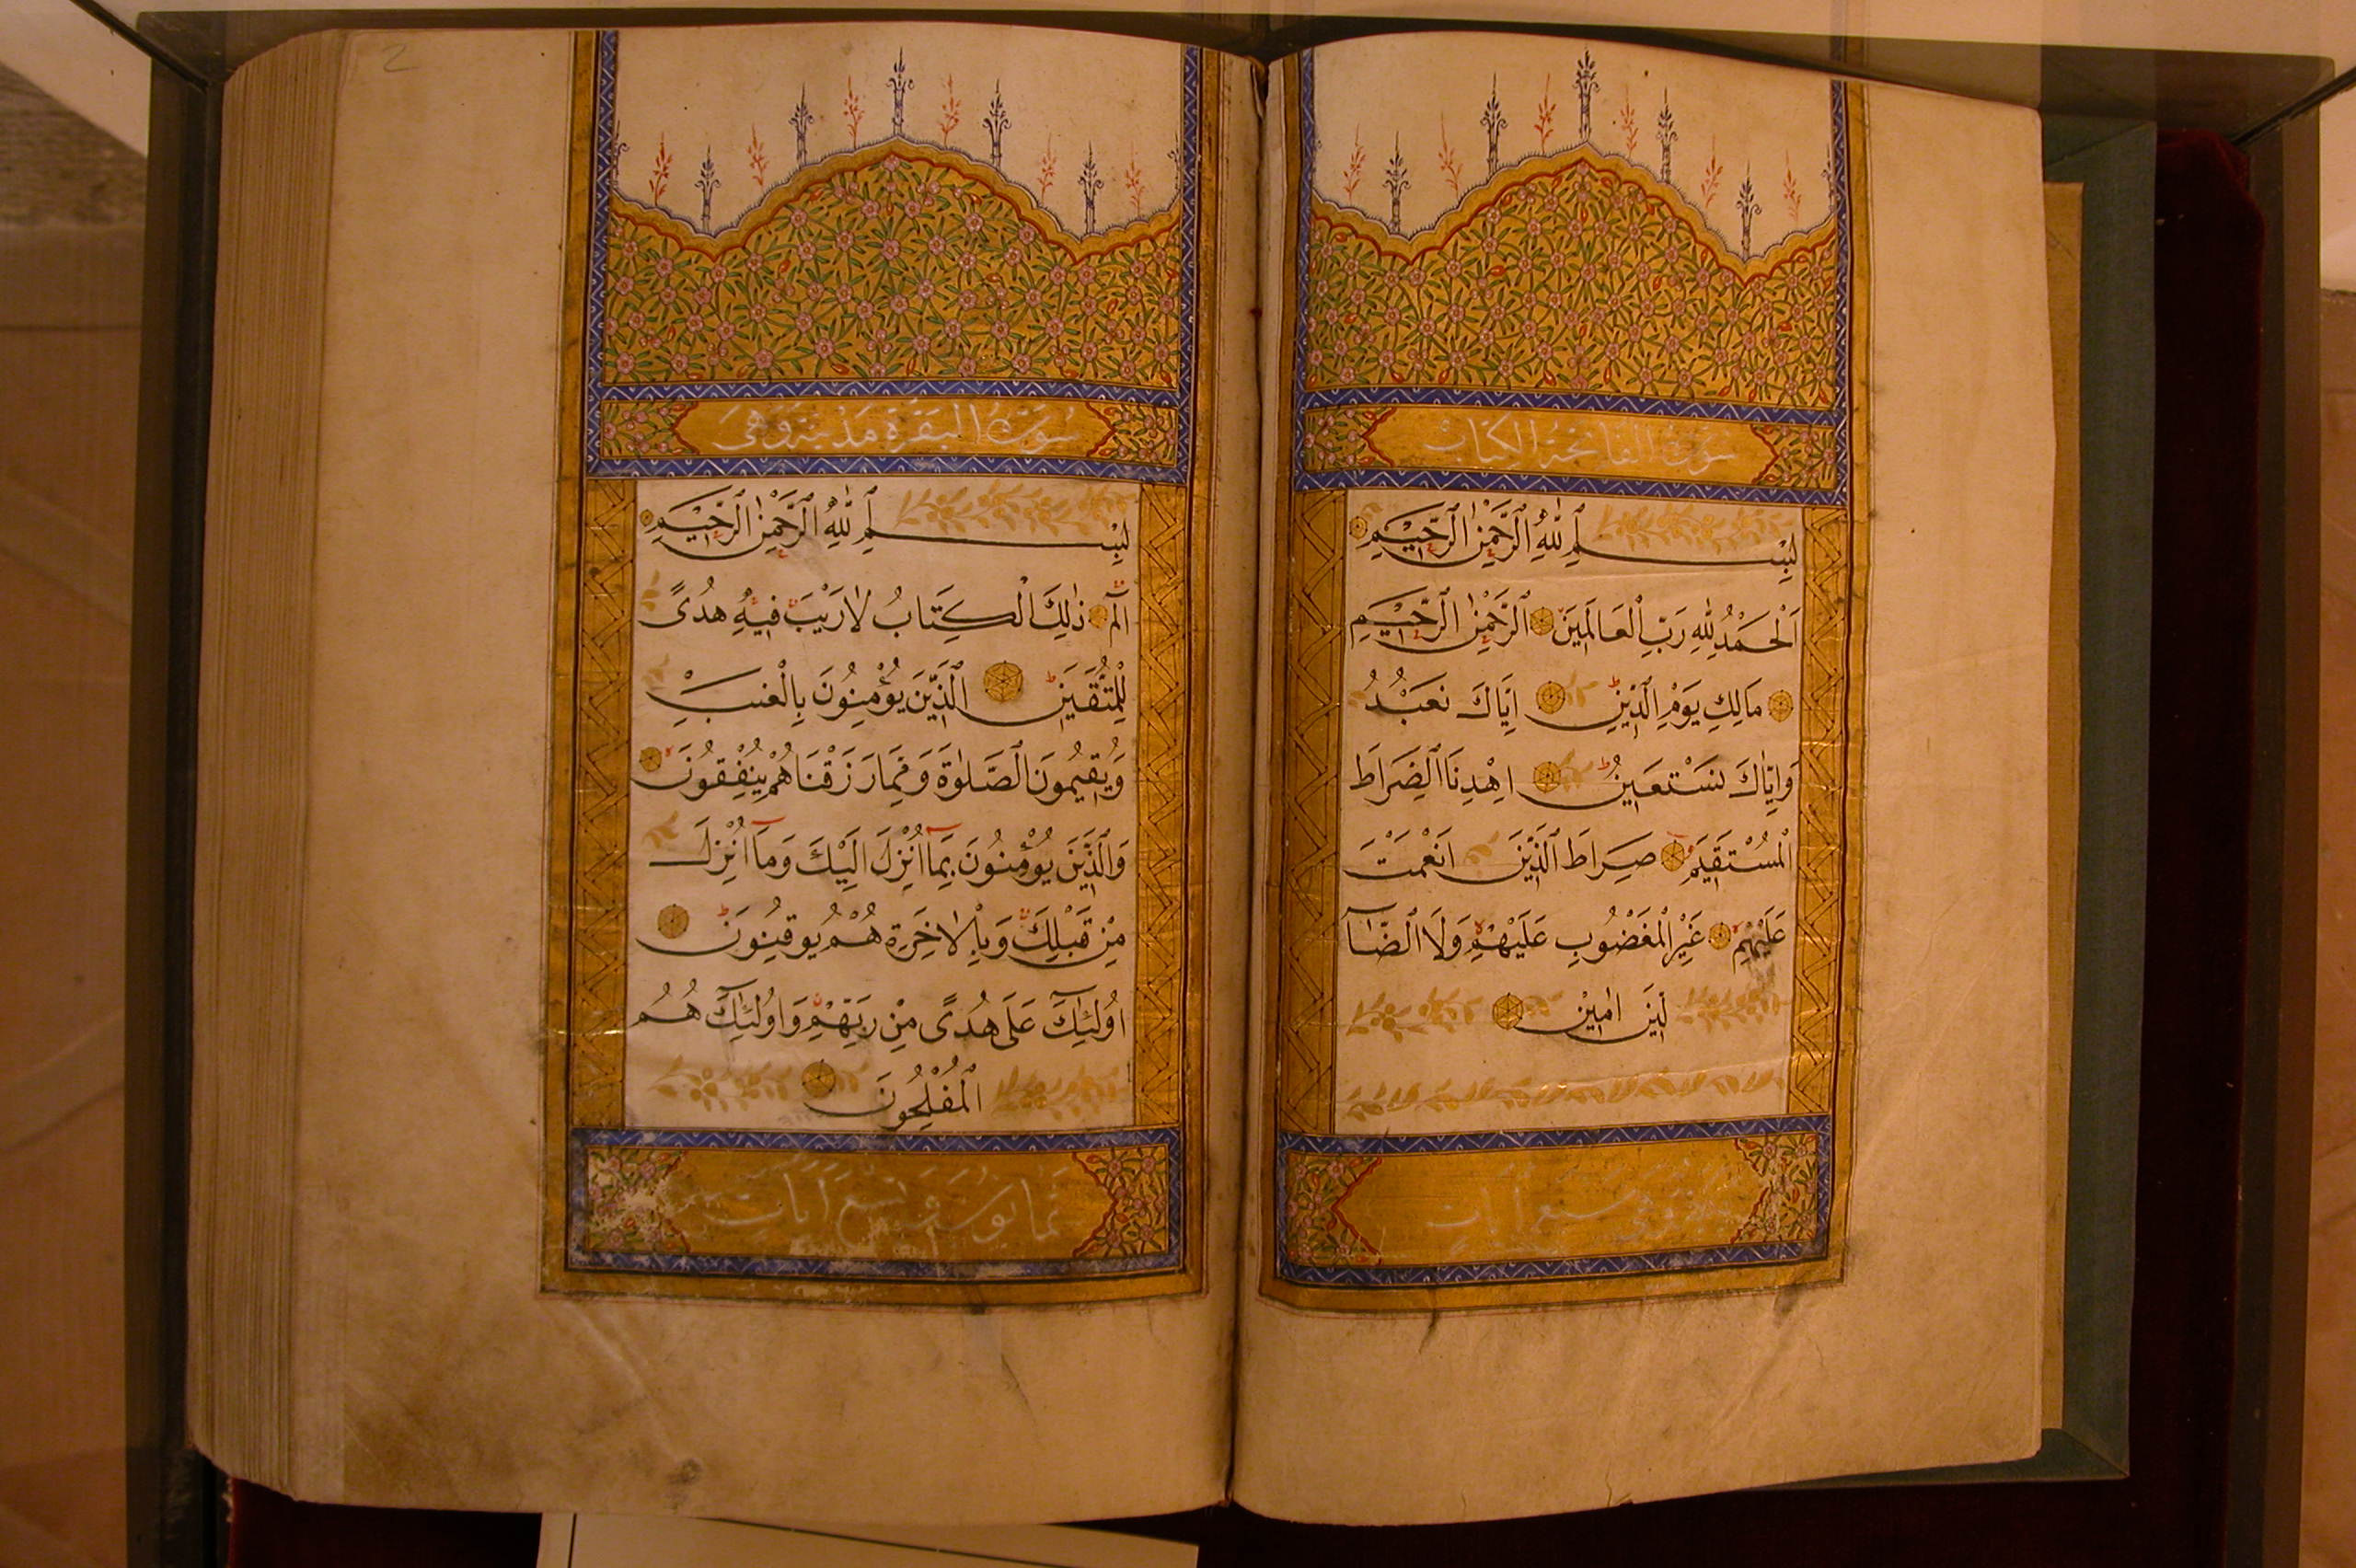 سورة الفاتحة الكتاب
بِسْمِ اللّٰهِ الرَّحْمٰنِ الرَّحِيْمِ
اَلْحَمْدُ لِلّٰهِ رَبِّ الْعَالَمِينَ الرَّحْمٰنِ الرَّحِيْمِ
مَالِكِ يَوْمِ الدِّيْنِ اِيَّاكَ نَعْبُدُ
وَاِيَّاكَ نَسْتَعِينُ اِهْدِنَا الصِّرَاطَ
الْمُسْتَقِيمَ صِرَاطَ الَّذِيْنَ اَنْعَمْتَ
عَلَيْهِمْ غَيْرِ الْمَغْضُوبِ عَلَيْهِمْ وَلَا الضَّآ
لِّيْنَ اٰمِيْنَ
وهي سبع آيات
سُورَةُ الْبَقَرَةِ مَدْنِيَّة وَهِيَ
بِسْمِ اللّٰهِ الرَّحْمٰنِ الرَّحِيْمِ
الٓمٓ ذٰلِكَ الْكِتَابُ لَا رَيْبَ فِيهِ هُدًى
لِلْمُتَّقِيَنَ الَّذِيْنَ يُؤْمِنُونَ بِالْغَيْبِ
وَيُقِيمُونَ الصَّلٰوةَ وَمِمَّا رَزَقْنَاهُمْ يُنْفِقُونَ
وَالَّذِيْنَ يُؤْمِنُونَ بِمَآ اُنْزِلَ اِلَيْكَ وَمَآ اُنْزِلَ
مِنْ قَبْلِكَ وَبِالْاٰخِرَةِ هُمْ يُوقِنُونَ
اُولٰٓئِكَ عَلٰى هُدًى مِنْ رَبِّهِمْ وَاُولٰٓئِكَ هُمُ
الْمُفْلِحُونَ
آيات
2